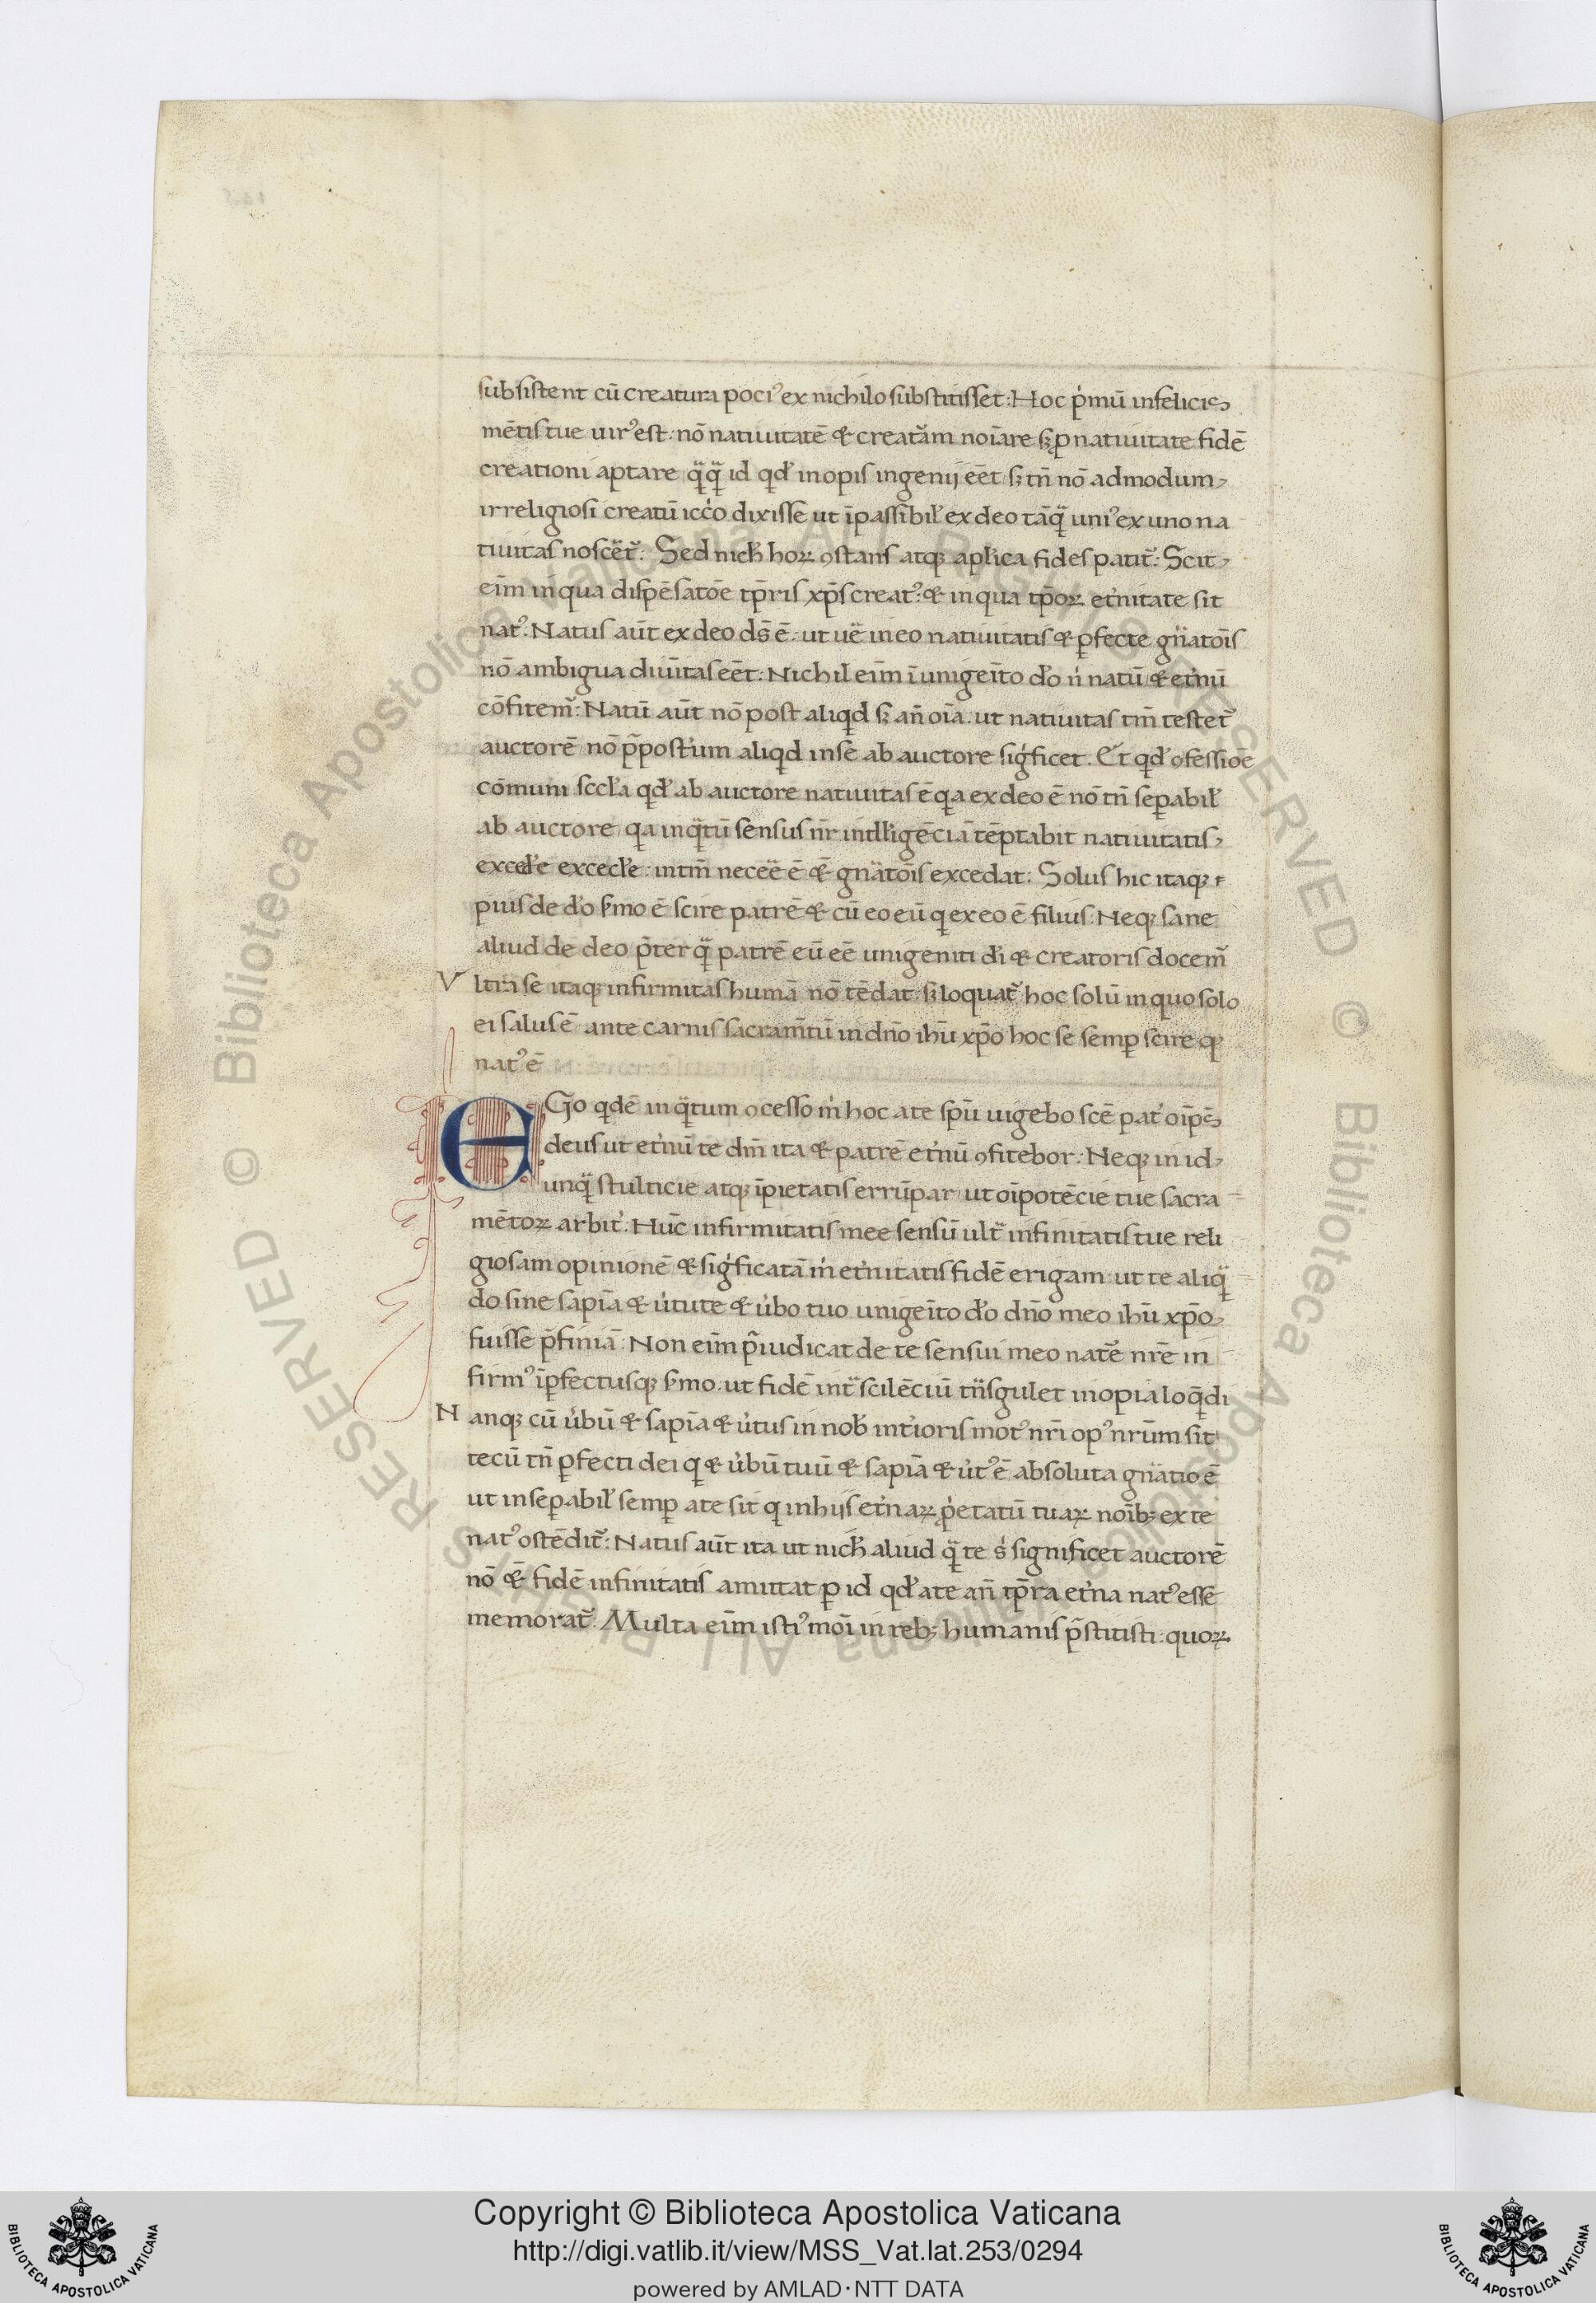 subsistent cū creatura poci᾽ ex nichilo substitisset: Hoc p̓mū infelicis
mētis tue uir᾽ est. nō natiuitatē & creatᷓam noīare sꝫ ꝑ natiuitate fidē
creationi aptare qᷓqᷓ id qd̓ inopis ingenij eēt sꝫ tn̄ nō admodum
irreligiosi creatū icc̓o dixisse ut īpassibil̓ ex deo tāqᷓ uni᾽ ex uno na
tiuitas noscet᷑: Sed nich̓ hoꝝ ꝯstans atqꝫ apl̓ica fides patit᷑: Scit
eīm in qua dispēsatōe tp̄ris xp̄s creat᾽: & in qua tp̄oꝝ et̓nitate sit
nat᾽. Natus aūt ex deo ds̄ ē. ut ue᷑ in eo natiuitatis & ꝑfecte gn̄atōis
nō ambigua diuīitas eēt: Nichil eīm ī unigeīto d̓o n̓ natū & et̓nū
cōfitem᷑: Natū aūt nō post aliqd sꝫ an̄ oīa. ut natiuitas tm̄ testet᷑
auctorē nō p̄post̓um aliqd in se ab auctore sig̓ficet. Et qd̓ ꝯfessiōe
cōmuni sccl̓a qd̓ ab auctore natiuitas ē qa ex deo ē nō tn̄ seꝑabil̓
ab auctore qa inqᷓtū sensus nr̄ intll̓igēciā tēptabit natiuitatis
exced̓e excecl̓e: intm̄ necee᷑ ē & gn̄atōis excedat: Solus hic itaqꝫ
pius de d̓o s̓mo ē scire patrē & cū eo eū q ex eo ē filius: Neqꝫ sane
aliud de deo p̄ter qᷓ patrē eū eē unigeniti d̓i & creatoris docem᷑
Vltra se itaqꝫ infirmitas humā nō tēdat: sꝫ loquat᷑ hoc solū in quo solo
ei salus ē ante carnis sacram̄tū in dn̄o ihū xp̄o hoc se semꝑ scire qꝫ
nat᾽ ē
EGo qdē inqᷓtum ꝯcesso m̓ hoc a te spū uigebo scē pat̓ oīps̄
deus ut et̓nū te dm̄ ita & patrē et̓nū ꝯfitebor: Neqꝫ in id
unqᷓ stulticie atqꝫ īpietatis errūpar ut oīpotēcie tue sacra
mētoꝝ arbit̓. Hūc infirmitatis mee sensū ult᷑ infinitatis tue reli
giosam opinionē & sig̓ficatā m̓ et̓nitatis fidē erigam: ut te aliqᷓ
do sine sapīa & u̓tute & u̓bo tuo unigeīto d̓o dn̄o meo ihū xp̄o
fuisse p̄finiā: Non eīm p̄iudicat de te sensui meo nat᷑e nr̄e in
firm᾽ īꝑfectusqꝫ s̓mo. ut fidē int᷑ scilēciū tn̄sgulet inopia loq̄di
Nanqꝫ cū u̓bū & sapīa & u̓tus in nob̓ int̓ioris mot᾽ nr̄i op᾽ nrūm sit
tecū tn̄ ꝑfecti dei q & u̓bū tuū & sapīa & u̓t᾽ ē absoluta gn̄atio ē
ut inseꝑabil̓ semꝑ a te sit q in hijs et̓naꝝ p̓etatū tuaꝝ noībꝫ ex te
nat᾽ ostēdit᷑: Natus aūt ita ut nich̓ aliud qᷓ te s̓ significet auctorē
nō & fidē infinitatis amittat ꝑ id qd̓ a te an̄ tp̄ra et̓na nat᾽ esse
memorat᷑. Multa eīm isti᾽moī in rebꝫ humanis p̄stitisti: quoꝝ
Copyright © Biblioteca Apostolica Vaticana
http://digi.vatlib.it/view/MSS_Vat.lat.253/0294
powered by AMLAD·NTT DATA